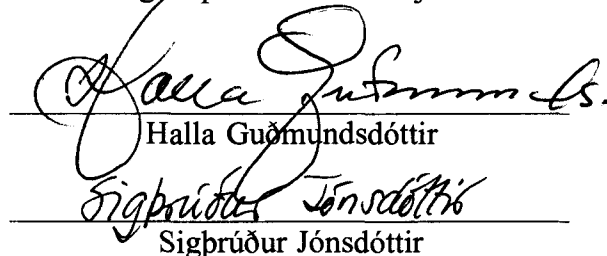 Halla Guðmunds.
Halla Guðmundsdóttir
Sigþrúður Jónsdóttir
Sigþrúður Jónsdóttir